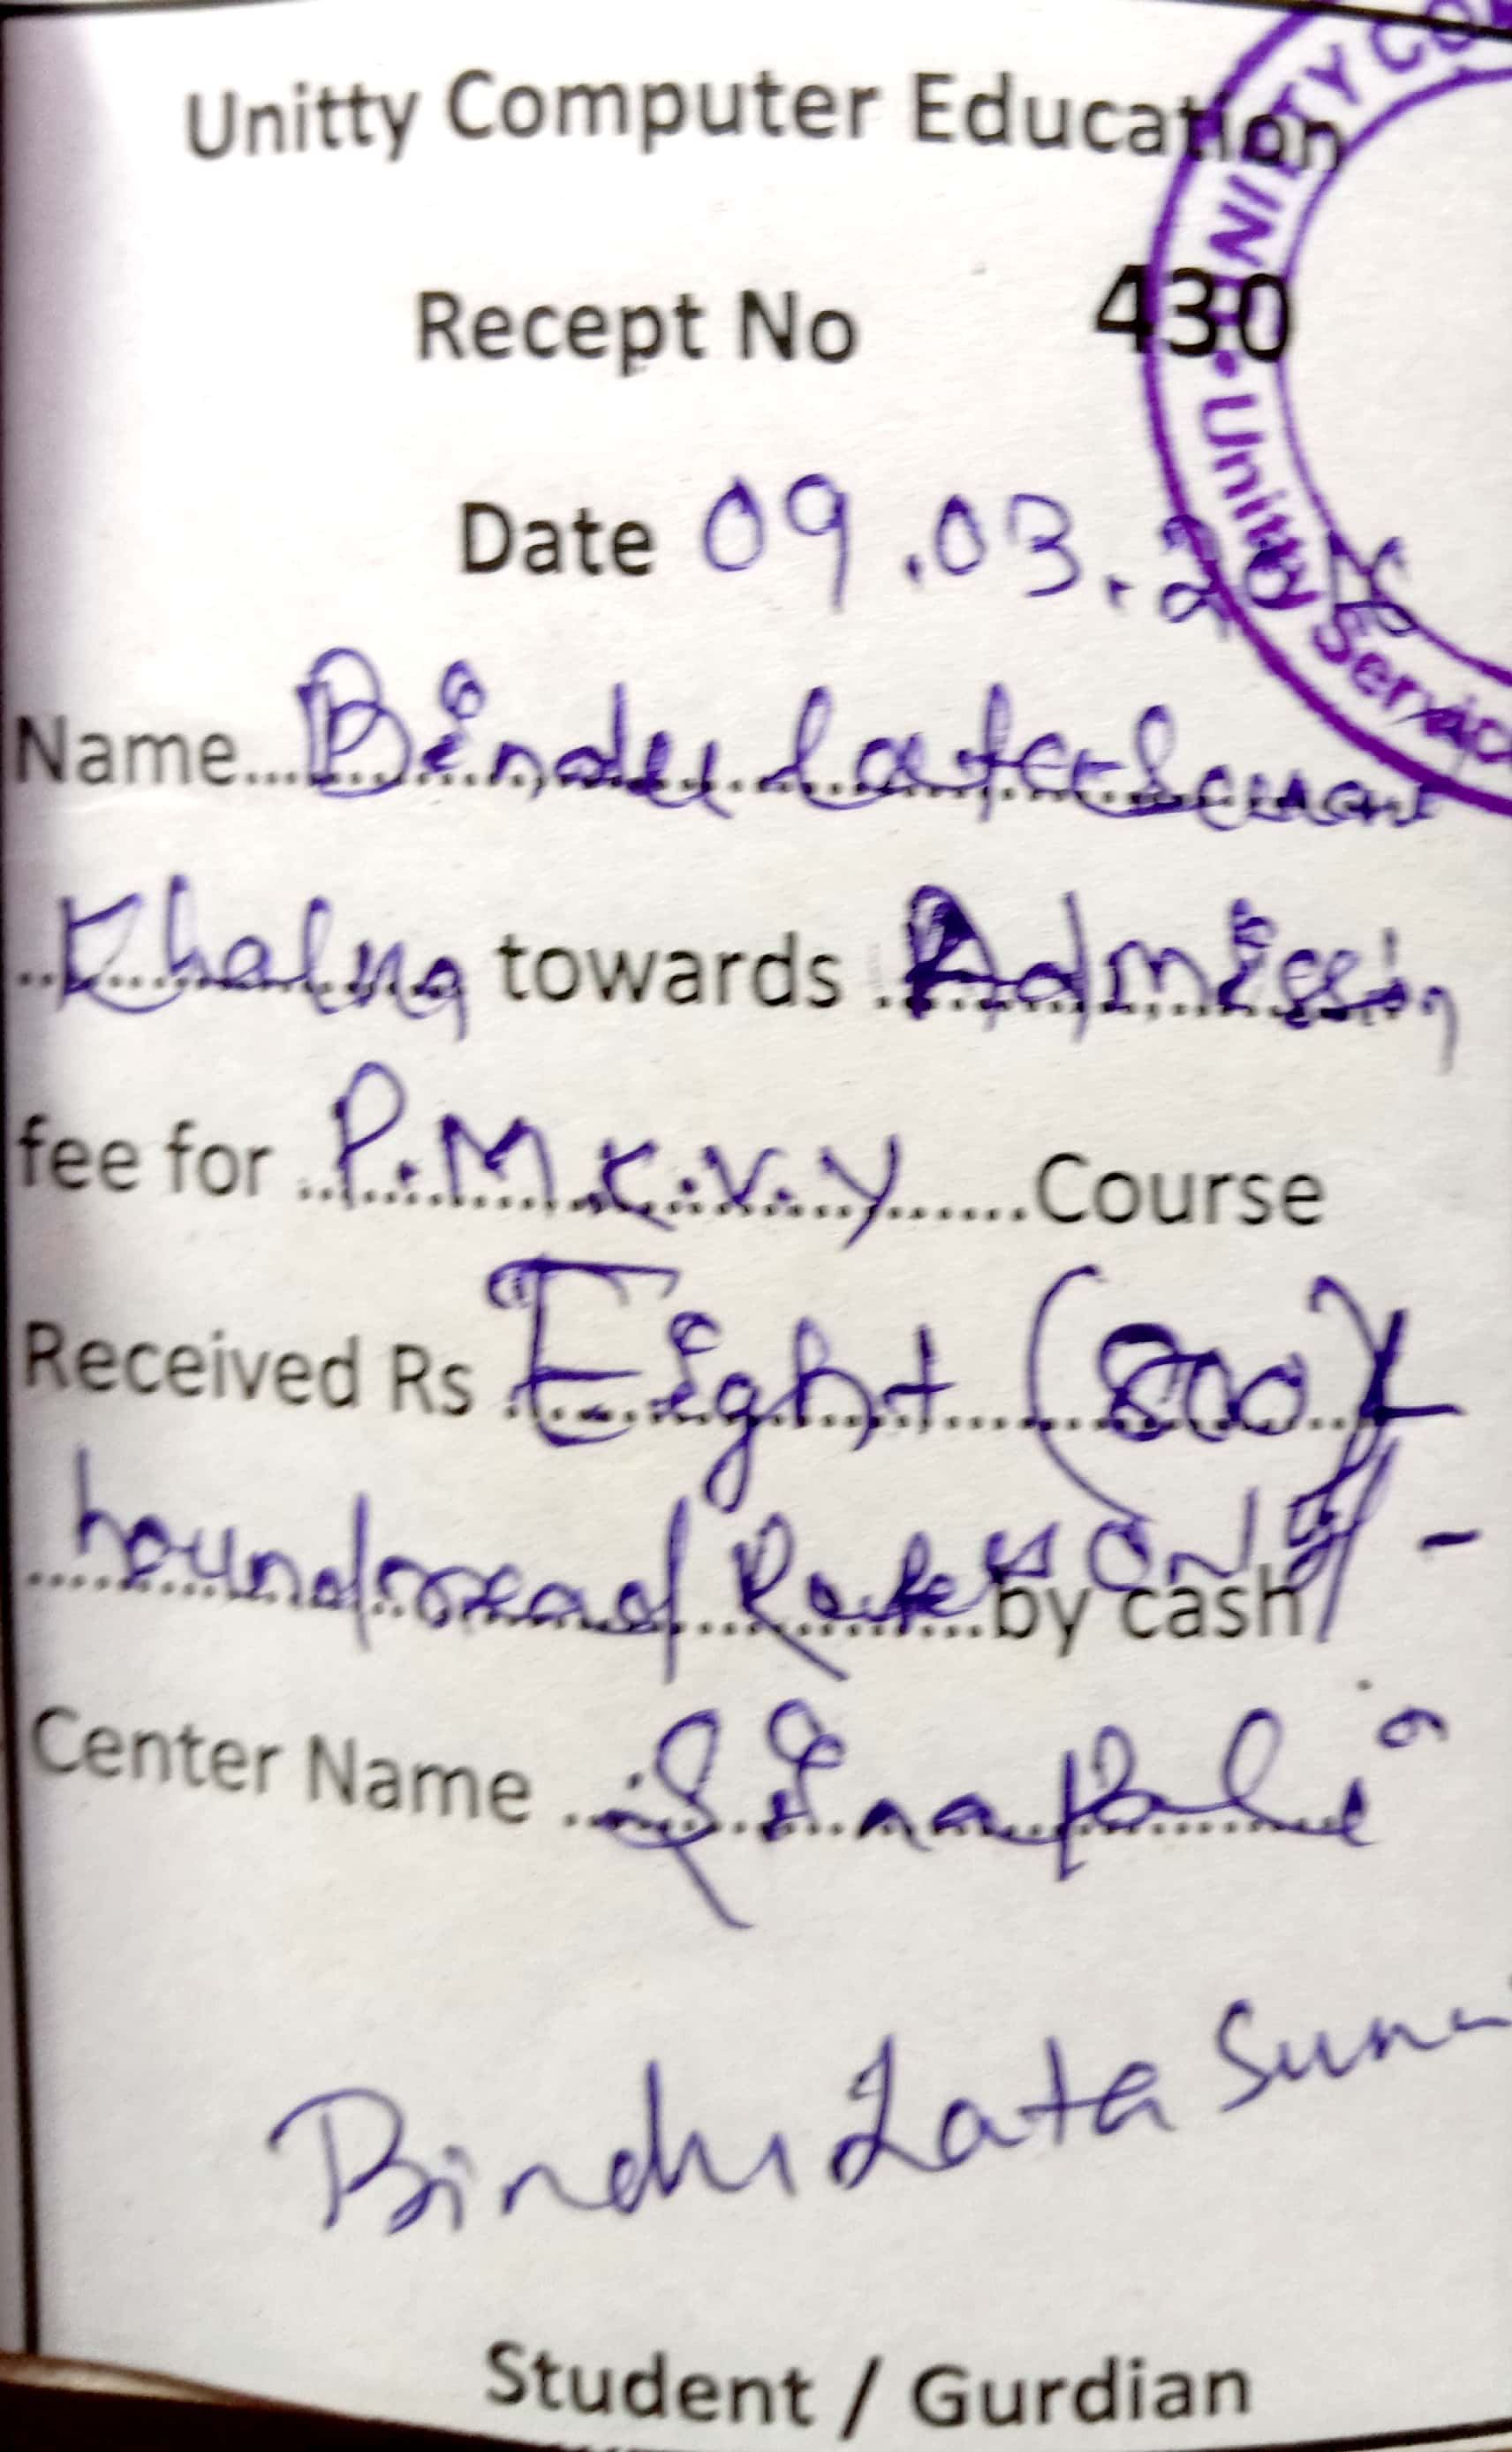 Unitty Computer Education
Recept No 430
Date 09.03.2016
Name... Bindu Lata Suna
Khalna towards Admission
fee for P.M.K.V.Y Course
Received Rs Eight (800)/-
houndread Rupees Only/- by cash
Center Name Sinapali
Bindu Lata Suna
Student / Gurdian
UNITTY CO
Unitty Service